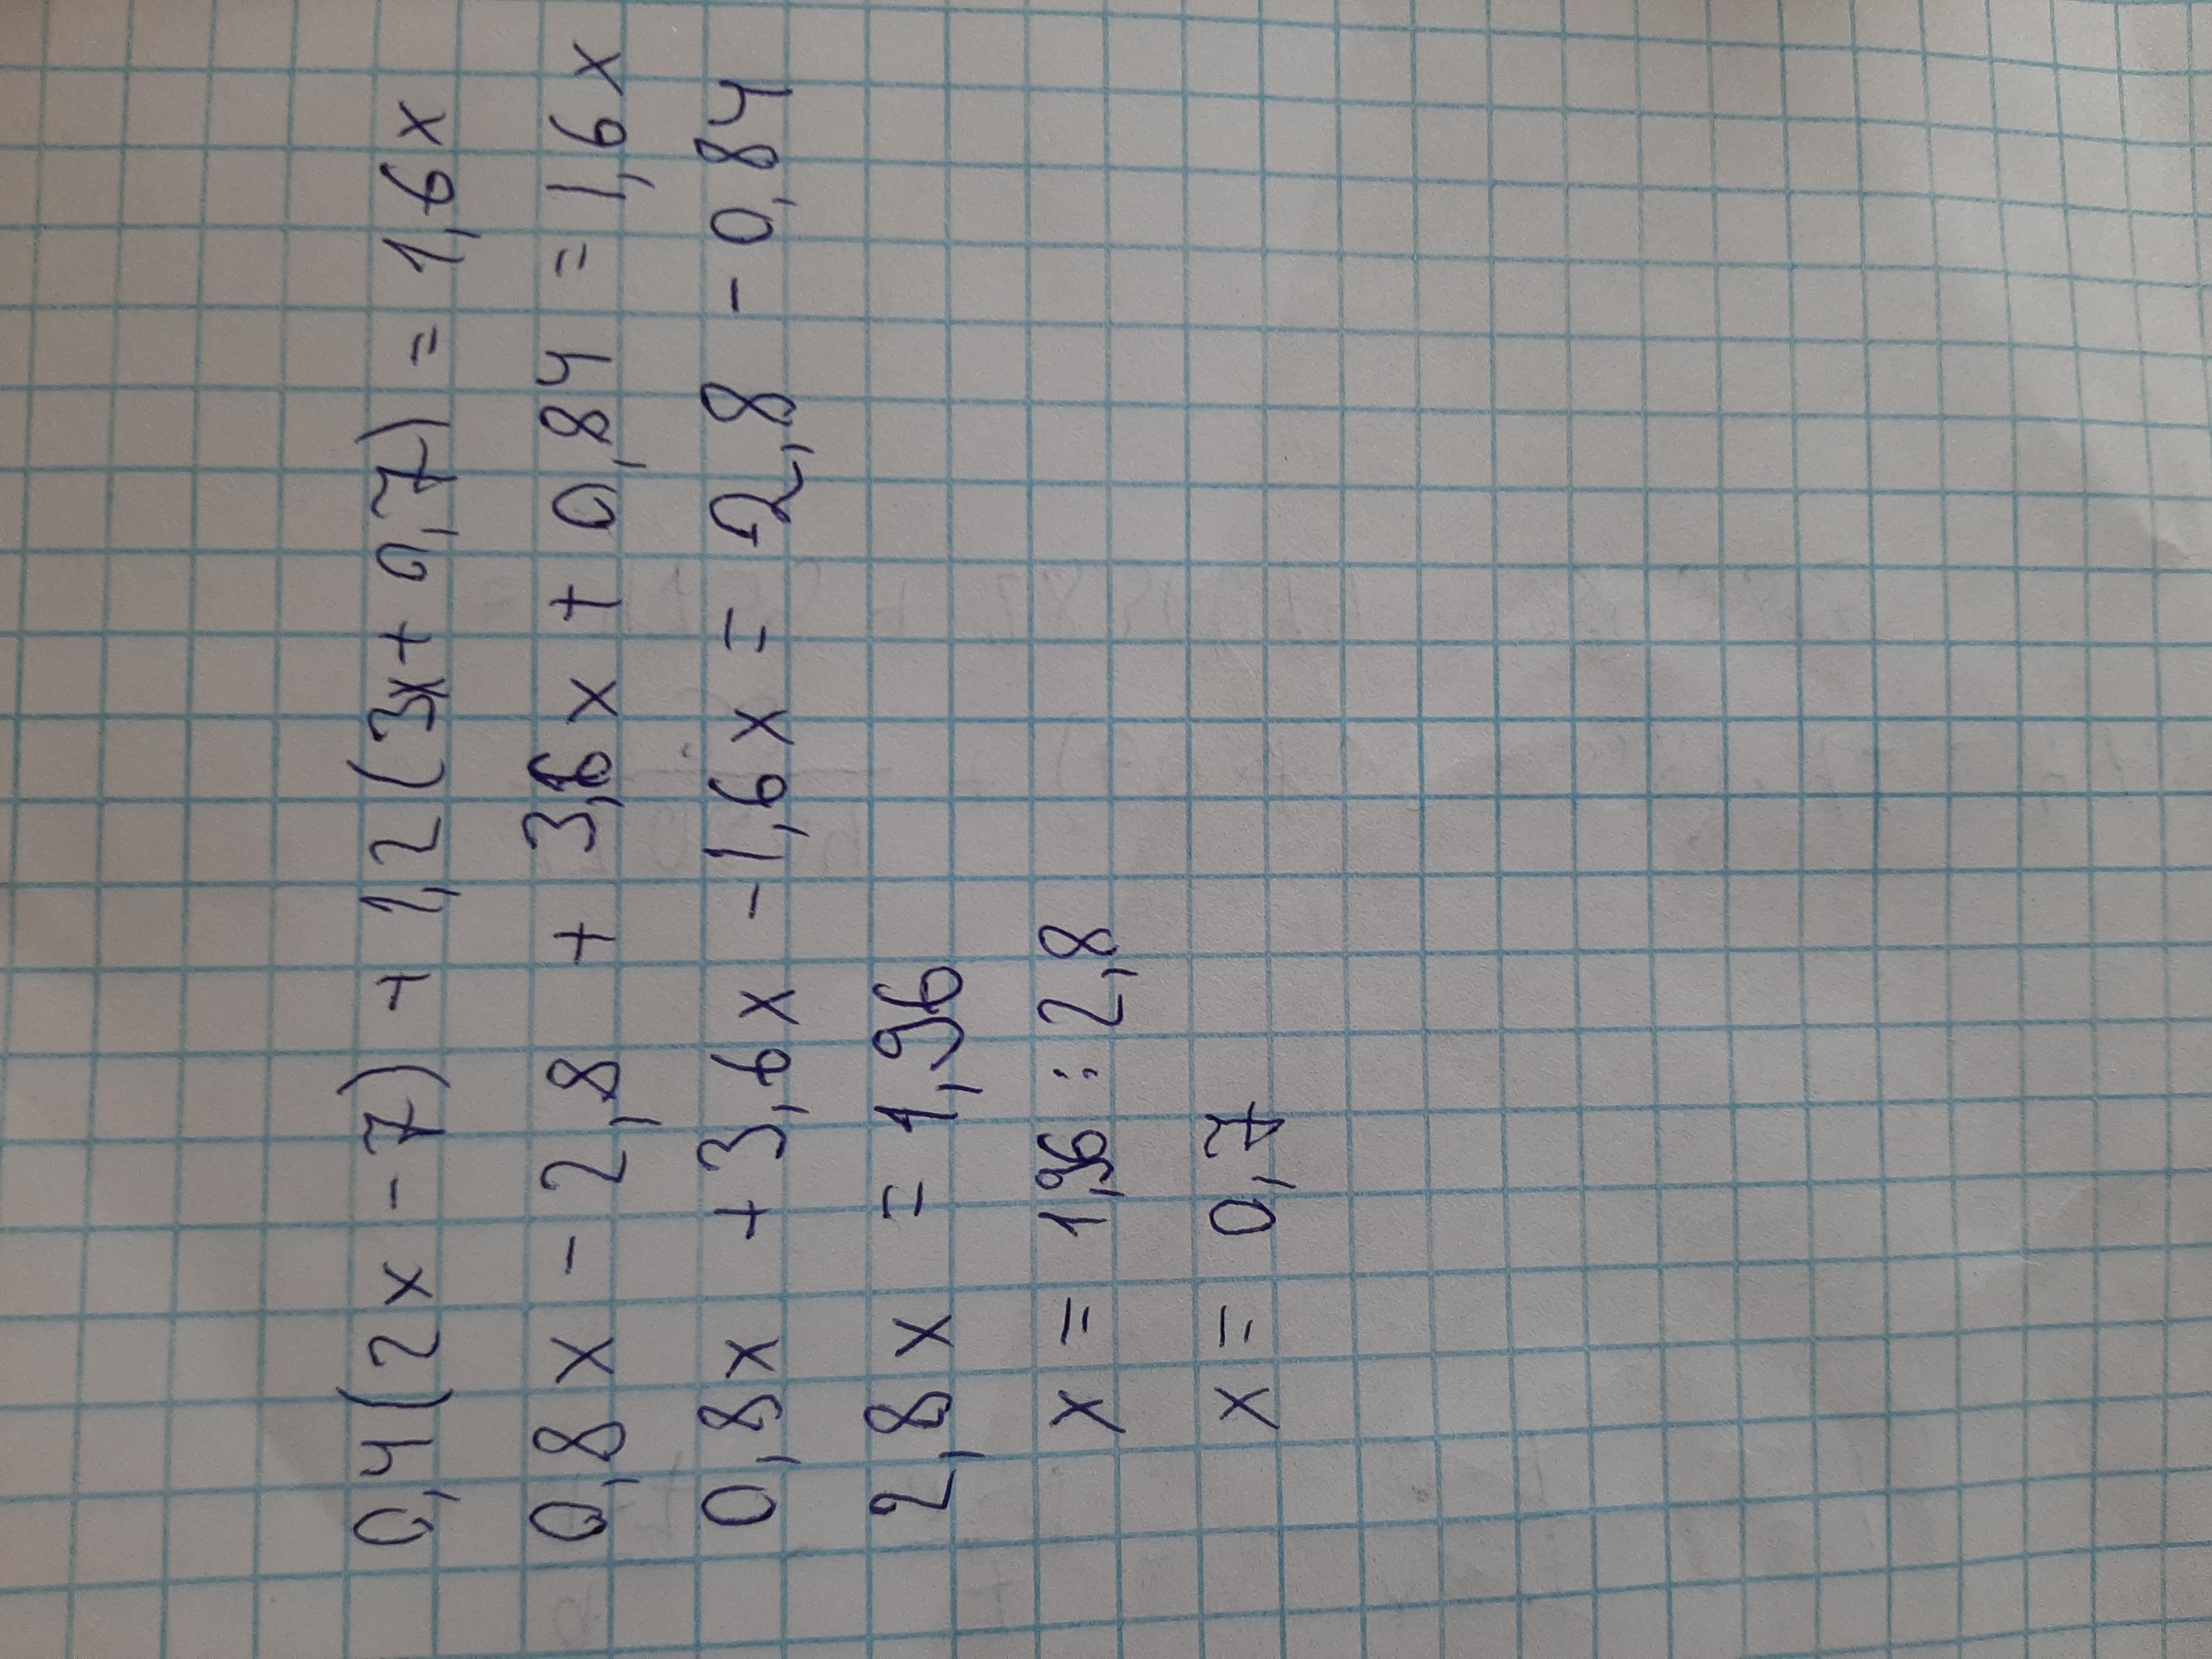 0,4(2x-7)+1,2(3x+0,7)=1,6x
0,8x-2,8+3,6x+0,84=1,6x
0,8x+3,6x-1,6x=2,8-0,84
2,8x=1,96
x=1,96:2,8
x=0,7